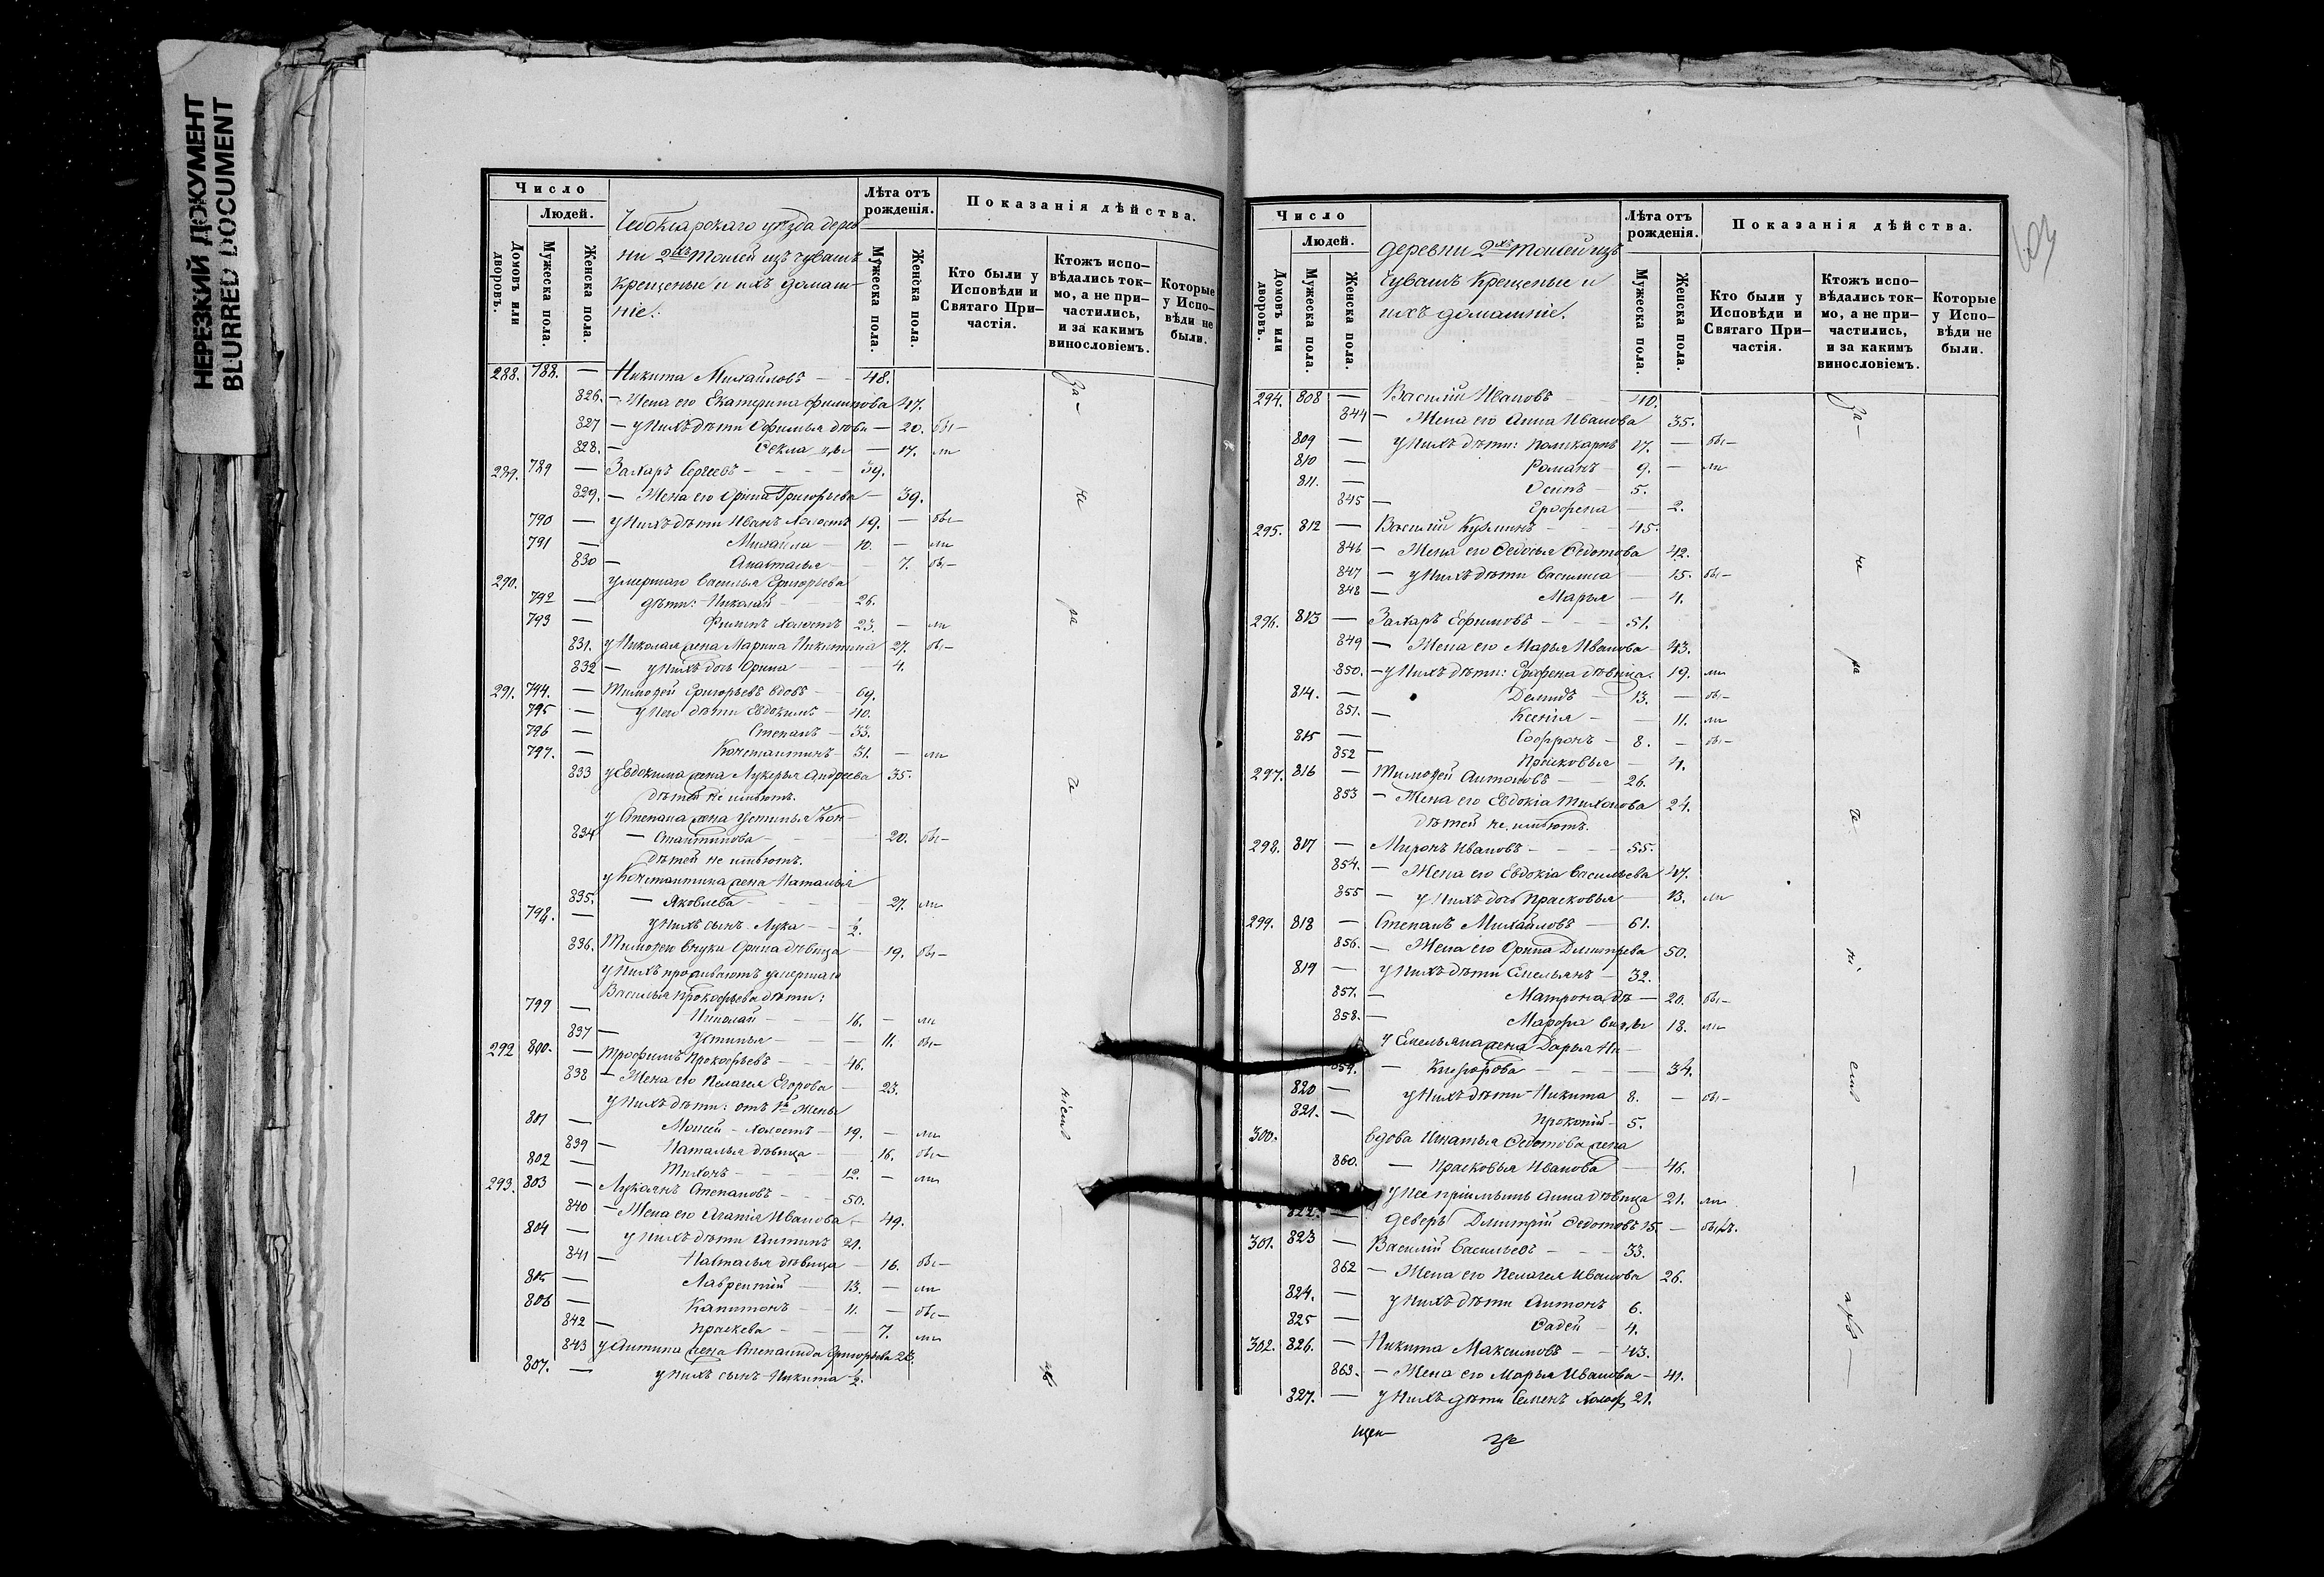 НЕРЕЗКИЙ ДОКУМЕНТ
BLURRED DOCUMENT
Число
Людей.
Домовъ или дворовъ.
Мужеска пола.
Женска пола.
Чебоксарскаго уѣзда дерев
ни 2хъ Тошей изъ чувашъ
крещеные и ихъ домаш-
ніе.
Лѣта отъ рожденія.
Мужеска пола.
Женска пола.
Показанія дѣйства.
Кто были у Исповѣди и Святаго При-частія.
Ктожъ испо-вѣдались ток-мо, а не при-частились, и за какимъ винословіемъ.
Которые у Испо-вѣди не были.
288. 788. — Никита Михайловъ — 48.
826. — Жена его Екатерина Филипова 47.
827 — у нихъ дѣти Офимья дѣви — 20. бы—
828. — Ѳекла — 17. ли
289. 789 — Захаръ Сергеевъ — 39.
829. — Жена его Орина Григорьева — 39.
790 — у нихъ дѣти Иванъ холостъ 19. — бы—
791 — Михайла — 10. — ли
830 — Анастасья — 7. бы—
290. умершаго Василья Григорьева
792 — дѣти: Николай 26.
793 — Филипъ холостъ 23. — ли
831. у Николая жена Марина Никитина 27. бы—
832 — у нихъ дочь Орина — 4.
291. 794. — Тимоѳей Григорьевъ вдовъ — 69.
795 — у него дѣти Евдокимъ — 40.
796 — Степанъ — 33.
797. — Константинъ — 31. — ли
833 у Евдокима жена Лукерья Андреева 35.
дѣтей не имѣютъ.
у Степана жена Устинья Кон-
834 — стантинова — 20. бы—
дѣтей не имѣютъ.
у Константина жена Наталья
835. — Яковлева — 27. ли
798. — у нихъ сынъ Лука — 1/2.
836. Тимоѳею внука Орина дѣвица — 19. бы—
у нихъ проживаютъ умершаго
Василья Прокофьева дѣти:
799 — Николай — 16. — ли
837 — Устинья — 11. бы—
292 800. — Трофимъ Прокофьевъ — 46.
838 — Жена его Пелагея Егорова — 23.
у нихъ дѣти: отъ 1й жены
801 — Моисей — холостъ — 19. — ли
839 — Наталья дѣвица — 16. бы—
802 — Тихонъ — 12. — ли
293. 803 — Лукоянъ Степановъ — 50.
840 — Жена его Агапія Иванова — 49.
804 — у нихъ дѣти Антипъ 21.
841 — Настасья дѣвица — 16. бы—
805 — Лаврентій — 13. — ли
806 — Капитонъ — 11. — бы—
842 — Праскева — 7. ли
843 у Антипа жена Степанида Григорьева 23.
807. — у нихъ сынъ Никита 1/2.
Число
Людей.
Домовъ или дворовъ.
Мужеска пола.
Женска пола.
деревни 2хъ Тошей изъ
Чувашъ крещеные и
ихъ домашніе.
Лѣта отъ рожденія.
Мужеска пола.
Женска пола.
Показанія дѣйства.
Кто были у Исповѣди и Святаго При-частія.
Ктожъ испо-вѣдались ток-мо, а не при-частились, и за какимъ винословіемъ.
Которые у Испо-вѣди не были.
294. 808 — Василій Ивановъ 40.
844 — Жена его Анна Иванова 35.
809 — у нихъ дѣти: Поликарпъ 17. — бы—
810 — Романъ — 9. — ли
811. — Осипъ — 5.
845 — Ерофена — 2.
295. 812 — Василій Кузминъ — 45.
846 — Жена его Ѳедосья Ѳедотова 42.
847 — у нихъ дѣти Василиса — 15. бы—
848 — Марья — 4.
296. 813 — Захаръ Ефимовъ — 51.
849 — Жена его Марья Иванова — 43.
850. — у нихъ дѣти: Ерофена дѣвица. 19. ли
814. — Демидъ — 13. — бы—
851. — Ксенія — 11. ли
815 — Софронъ — 8. — бы—
852 — Прасковья — 4.
297. 816 — Тимоѳей Антоновъ — 26.
853 — Жена его Евдокіа Тихонова 24.
дѣтей не имѣютъ.
298. 817 — Миронъ Ивановъ — 55.
854. — Жена его Евдокіа Васильева 47.
855 — у нихъ дочь Прасковья — 13. ли
299. 818 — Степанъ Михайловъ — 61.
856. — Жена его Орина Дмитріева 50.
819 — у нихъ дѣти Емельянъ — 32.
857. — Матрона дѣ — 20. бы—
858. — Марфа — 18. ли
у Емельяна жена Дарья Ни—
859. — кифорова — 34.
820 — у нихъ дѣти Никита 8. — бы—
821. — Прокопій — 5.
300. вдова Игнатья Ѳедотова жена
860. — Прасковья Иванова — 46.
у нее пріимышъ Анна дѣвица 21. ли
822. — деверь Дмитрій Ѳедотовъ 15. — былъ.
301. 823 — Василій Васильевъ — 33.
862 — Жена его Пелагея Иванова 26.
824. — у нихъ дѣти Антонъ 6.
825 — Ѳадей — 4.
302. 826. — Никита Максимовъ — 43.
863. — Жена его Марья Иванова — 41.
827. — у нихъ дѣти Семенъ холос 21.
щен—